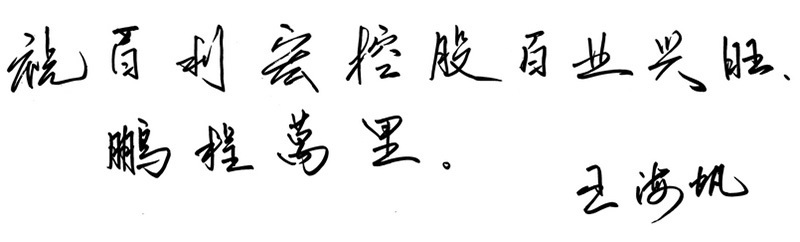 祝百利宏控股百业兴旺、
鹏程萬里。
王海帆